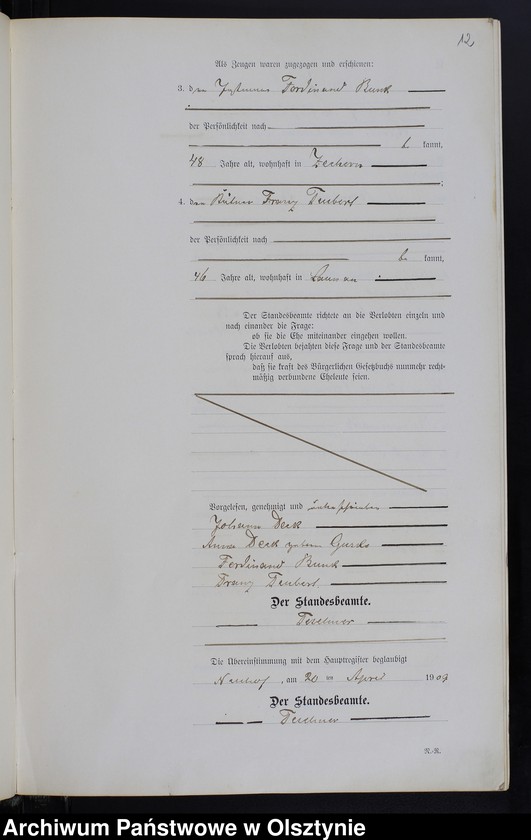 12
Als Zeugen waren zugezogen und erschienen:
3. der Ferdinand Bunk
der Persönlichkeit nach
b kannt,
48 Jahre alt, wohnhaft in Zechern
;
4. der Franz Teubert
der Persönlichkeit nach
b kannt,
46 Jahre alt, wohnhaft in
Der Standesbeamte richtete an die Verlobten einzeln und
nach einander die Frage:
ob sie die Ehe miteinander eingehen wollen.
Die Verlobten bejahten diese Frage und der Standesbeamte
sprach hierauf aus,
daß sie kraft des Bürgerlichen Gesetzbuchs nunmehr recht-
mäßig verbundene Eheleute seien.
Vorgelesen, genehmigt und unterschrieben
Johann Deck
Anna Deck geborene
Ferdinand Bunk
Franz Teubert
Der Standesbeamte.
Teschner
Die Übereinstimmung mit dem Hauptregister beglaubigt
Neuhof, am 20 ten April 1909
Der Standesbeamte.
Teschner
N.-R.
Archiwum Państwowe w Olsztynie